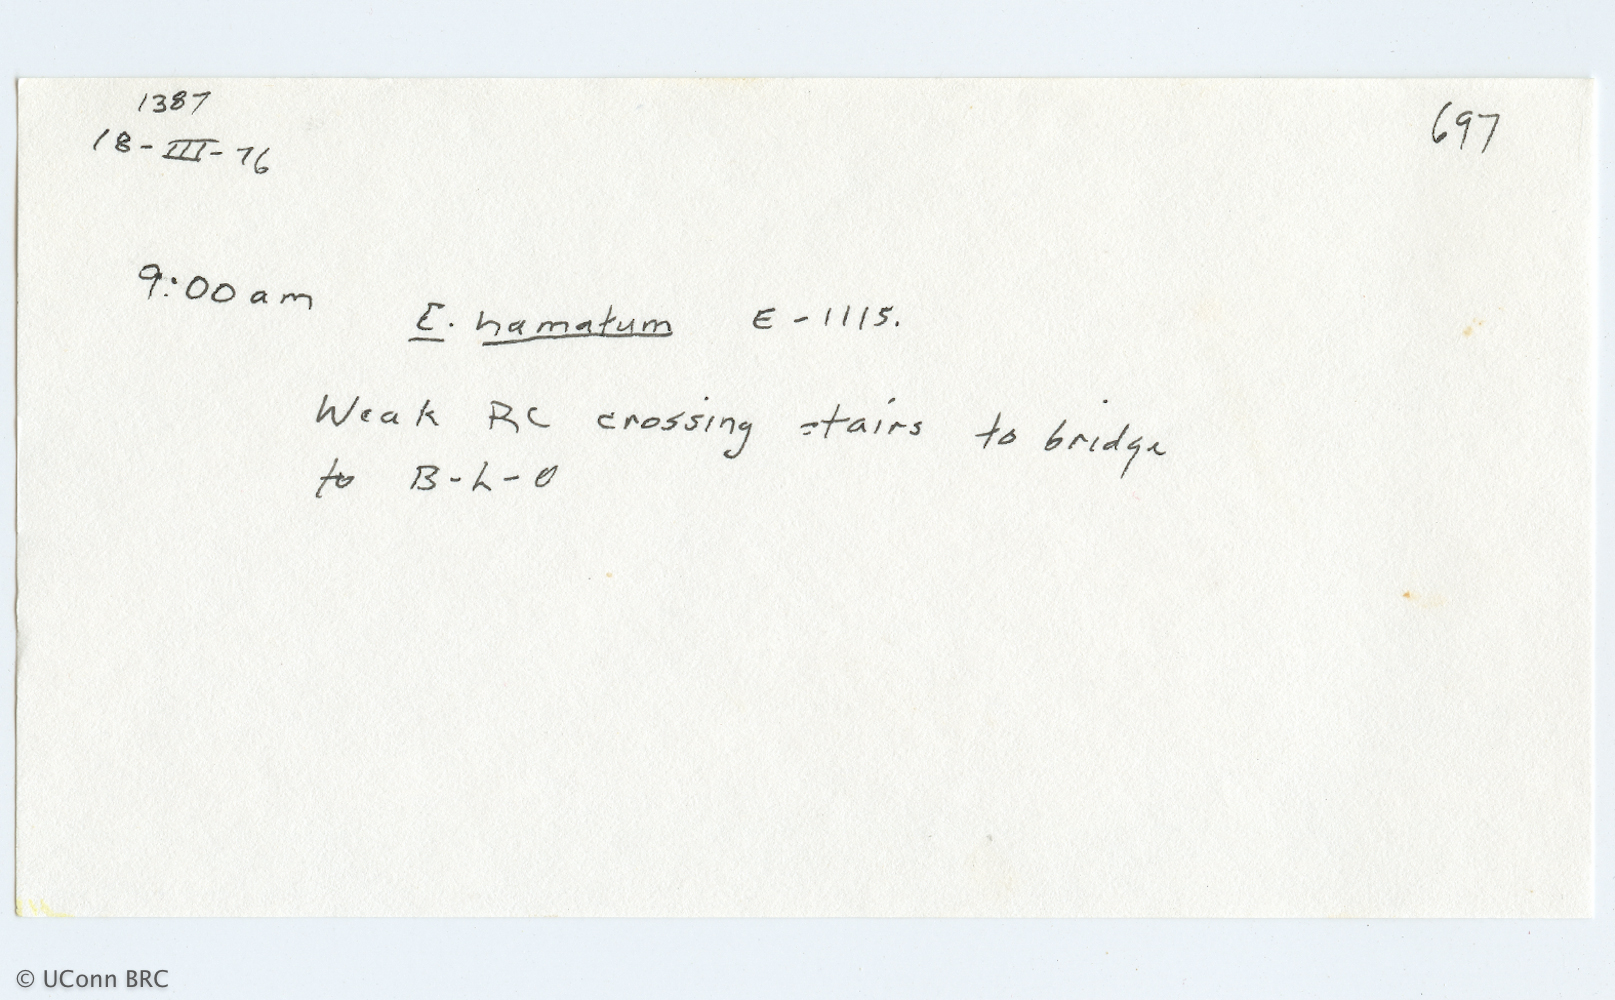 1387
18-III-76
697
9:00 am
E. hamatum E-1115.
Weak RC crossing stairs to bridge
to B-L-O
© UConn BRC